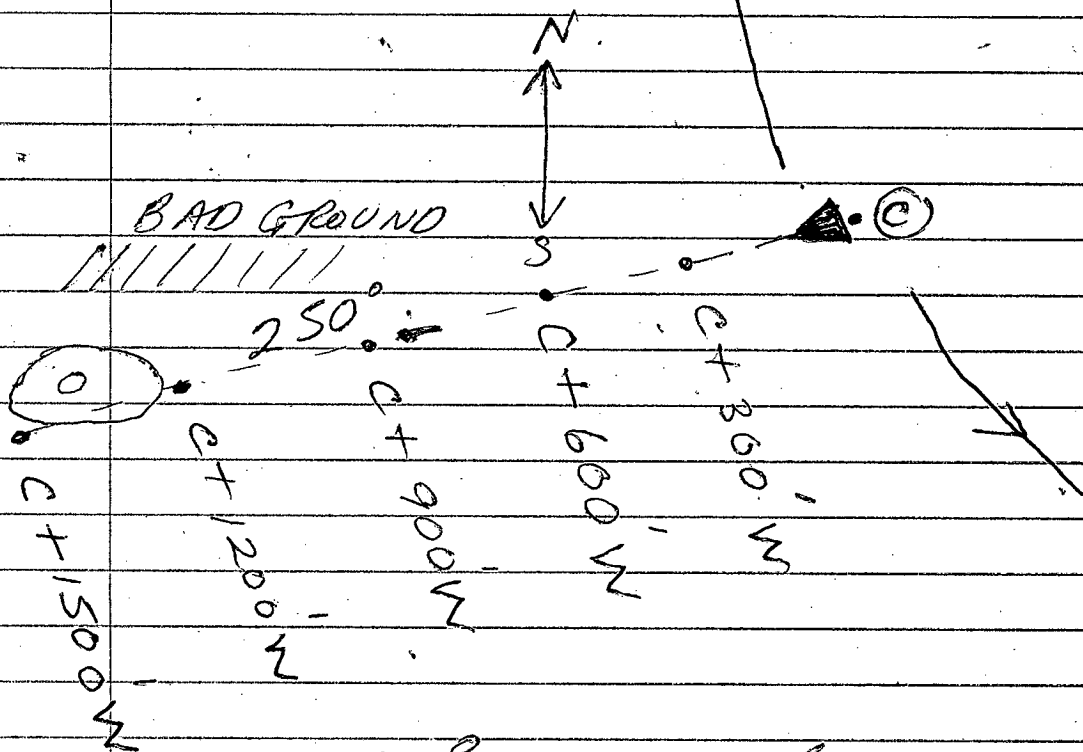 N
BAD GROUND
S
C
250°
O
C+300' W
C+600' W
C+900' W
C+1200' W
C+1500' W